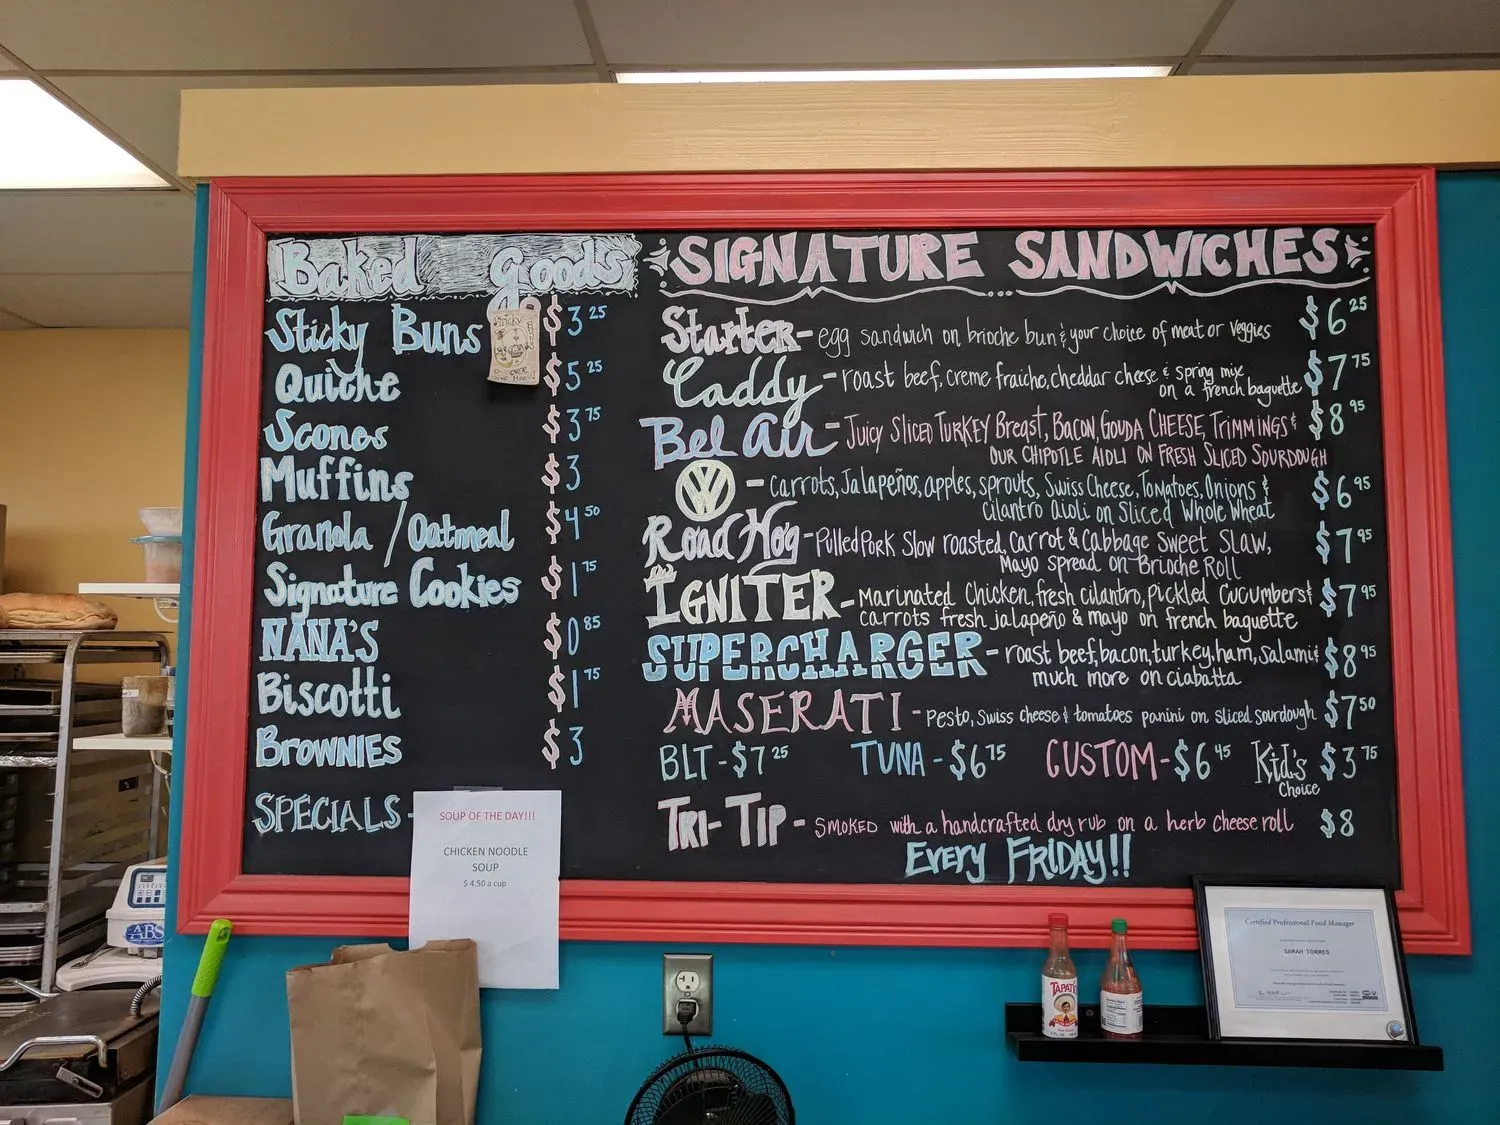 Baked Goods
Sticky Buns $3.25
Quiche $5.25
Scones $3.75
Muffins $3
Granola / Oatmeal $4.50
Signature Cookies $1.75
NANA'S $0.85
Biscotti $1.75
BROWNIES $3
SPECIALS-
SOUP OF THE DAY!!!
CHICKEN NOODLE
SOUP
$ 4.50 a cup
SIGNATURE SANDWICHES
Starter- egg sandwich on brioche bun & your choice of meat or veggies $6.25
Caddy - roast beef, creme fraiche, cheddar cheese & spring mix $7.75
on a french baguette
Bel Air - Juicy Sliced Turkey Breast, Bacon, Gouda Cheese, Trimmings & $8.95
our chipotle aioli on fresh sliced sourdough
VW - carrots, Jalapeños, apples, sprouts, Swiss Cheese, Tomatoes, Onions & $6.95
cilantro aioli on Sliced Whole Wheat
Road Hog - Pulled Pork Slow roasted, Carrot & Cabbage Sweet Slaw, $7.95
Mayo spread on Brioche Roll
IGNITER - Marinated Chicken, fresh cilantro, pickled Cucumbers & $7.95
carrots fresh jalapeño & mayo on french baguette
SUPERCHARGER - roast beef, bacon, turkey, ham, salami & $8.95
much more on ciabatta
MASERATI - Pesto, Swiss cheese & tomatoes panini on sliced sourdough $7.50
BLT - $7.25 TUNA - $6.75 CUSTOM - $6.45 Kid's $3.75
Choice
TRI-TIP - Smoked with a handcrafted dry rub on a herb cheese roll $8
Every FRIDAY!!
Certified Professional Food Manager
SARAH TORRES
TAPATIO
ABS